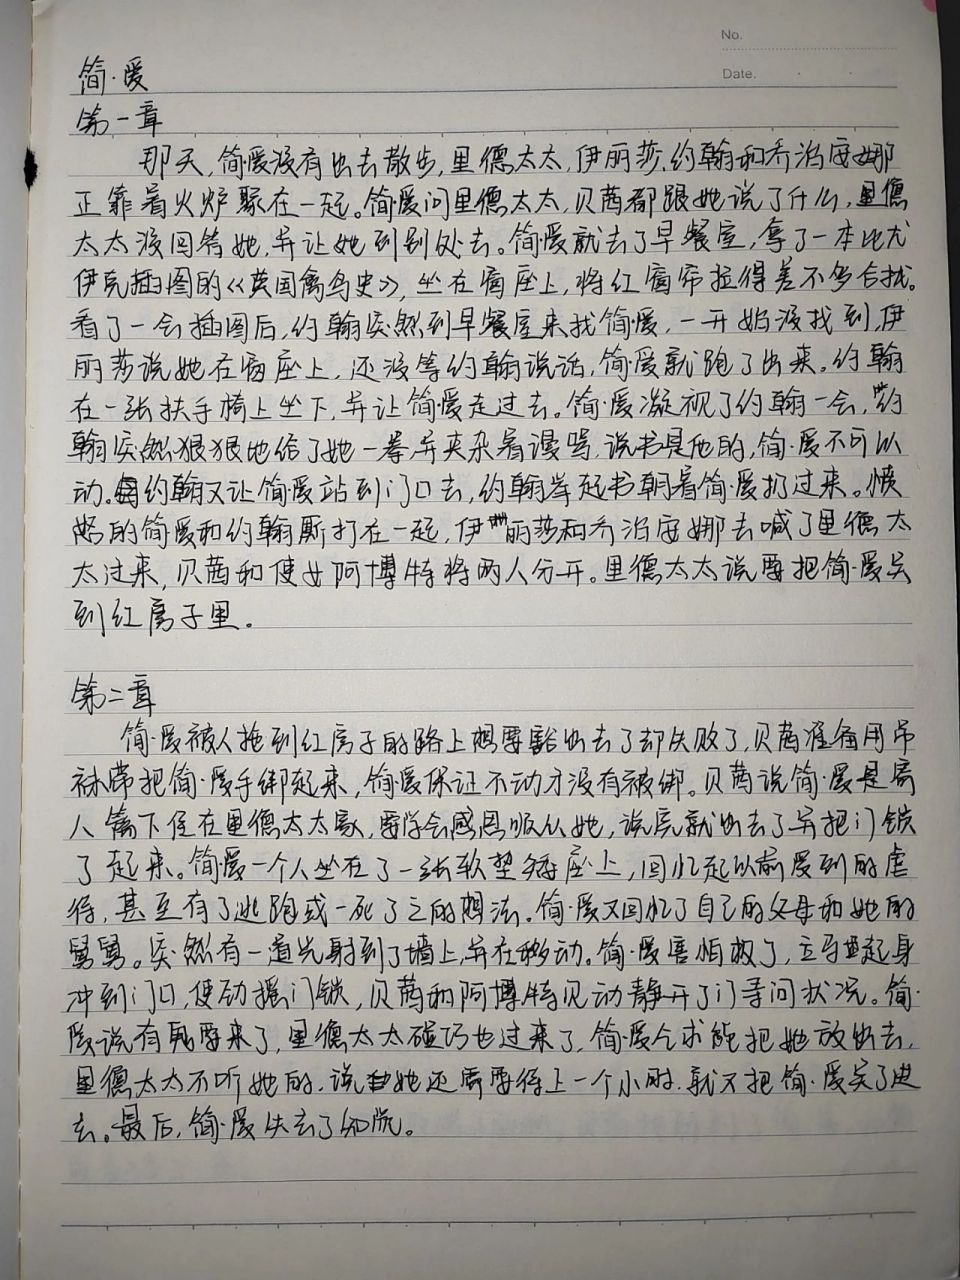 No.
Date.
简·爱
第一章
那天,简·爱没有出去散步,里德太太,伊丽莎、约翰和乔治安娜
正靠着火炉聚在一起。简·爱问里德太太,贝茜都跟她说了什么,里德
太太没回答她,并让她到别处去。简·爱就去了早餐室,拿了一本比尤
伊克插图的《英国禽鸟史》,坐在窗座上,将红窗帘拉得差不多合拢。
看了一会插图后,约翰突然到早餐室来找简·爱,一开始没找到,伊
丽莎说她在窗座上,还没等约翰说话,简·爱就跑了出来。约翰
在一张扶手椅上坐下,并让简·爱走过去。简·爱凝视了约翰一会,约
翰突然狠狠地给了她一拳并夹杂着谩骂,说书是他的,简·爱不可以
动。约翰又让简·爱站到门口去,约翰举起书朝着简·爱扔过来。愤
怒的简·爱和约翰厮打在一起,伊丽莎和乔治安娜去喊了里德太
太过来,贝茜和使女阿博特将两人分开。里德太太说要把简·爱关
到红房子里。
第二章
简·爱被人拖到红房子的路上想要豁出去了却失败了,贝茜准备用吊
袜带把简·爱手绑起来,简·爱保证不动才没有被绑。贝茜说简·爱是寄
人篱下住在里德太太家,要学会感恩顺从她,说完就出去了并把门锁
了起来。简·爱一个人坐在了一张软垫矮座上,回忆起以前受到的虐
待,甚至有了逃跑或一死了之的想法。简·爱又回忆了自己的父母和她的
舅舅。突然有一道光射到了墙上,并在移动。简·爱害怕极了,立马起身
冲到门口,使劲摇门锁,贝茜和阿博特见动静开了门寻问状况。简·
爱说有鬼要来了,里德太太碰巧也过来了,简·爱乞求能把她放出去,
里德太太不听她的,说她还需要待上一个小时,就又把简·爱关了进
去。最后,简·爱失去了知觉。